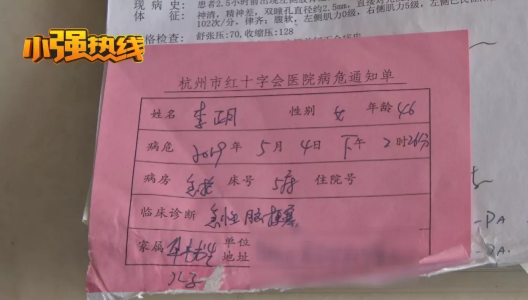 现病史: 患者2.5小时前出现左侧肢体
体 征: 神清,精神差,双瞳孔直径约2.5mm,直接对光
102次/分,律齐;腹软;左侧肌力0级,右侧肌力5级,左侧巴氏
检 查: 舒张压:70,收缩压:128
小强热线
杭州市红十字会医院病危通知单
姓名 李 月 性别 女 年龄 46
病危 2019年 5月 4日 下午 2时26分
病房 急抢 床号 5床 住院号
临床诊断 急性脑梗塞
家属 单位
地址
DA
A